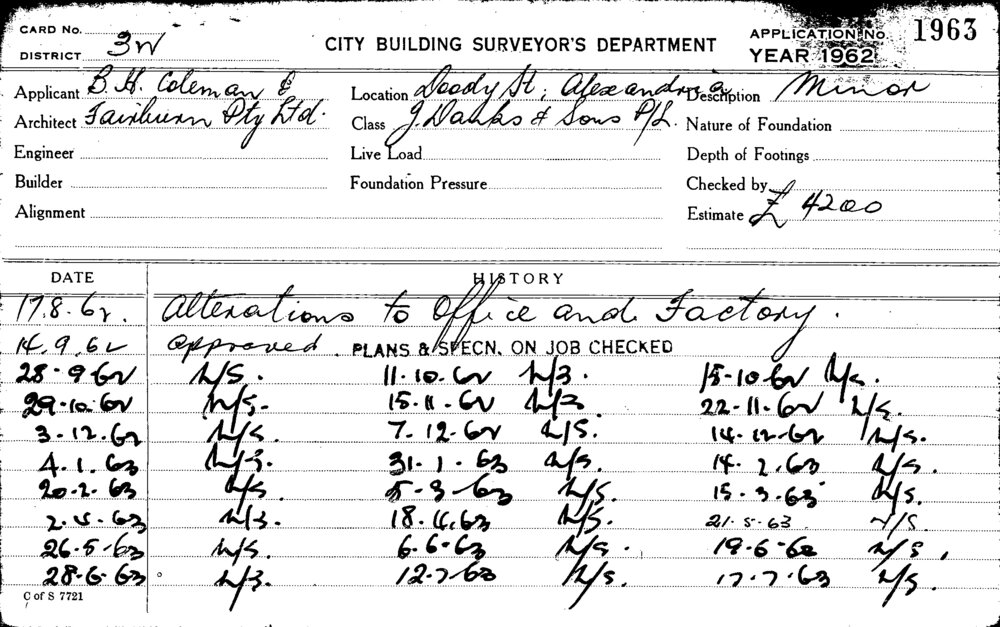 CARD No. APPLICATION No. 1963
DISTRICT 3W CITY BUILDING SURVEYOR'S DEPARTMENT YEAR 1962
Applicant B. H. Coleman & Location Doody St; Alexandria Description Minor
Architect Fairburn Pty Ltd. Class J. Danks & Sons P/L. Nature of Foundation
Engineer Live Load Depth of Footings
Builder Foundation Pressure Checked by
Alignment Estimate £4200
DATE HISTORY
17.8.62. Alterations to Office and Factory.
14.9.62 approved. PLANS & SPECN. ON JOB CHECKED
28-9-62 N/S. 11-10.62 N/S. 15-10-62 N/S.
29-10-62 N/S. 15.11.62 N/S 22-11-62 N/S.
3-12.62 N/S. 7.12-62 N/S. 14-12-62 N/S.
4.1.63 N/S. 31.1.63 N/S. 14.2.63 N/S.
20-2.63 N/S. 5-3-63 N/S. 15.3.63 N/S.
63 N/S. 18.4.63 N/S. 21.5.63 N/S.
26-5-63 N/S. 6-6-63 N/S. 19-6-62 N/S.
28-6-63 N/S. 12-7-63 N/S. 17.7.63 N/S.
C of S 7721